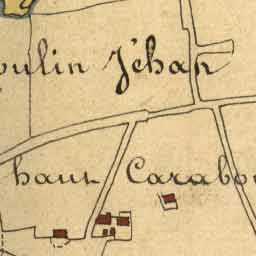 oulin Jéhan
haut Carabo